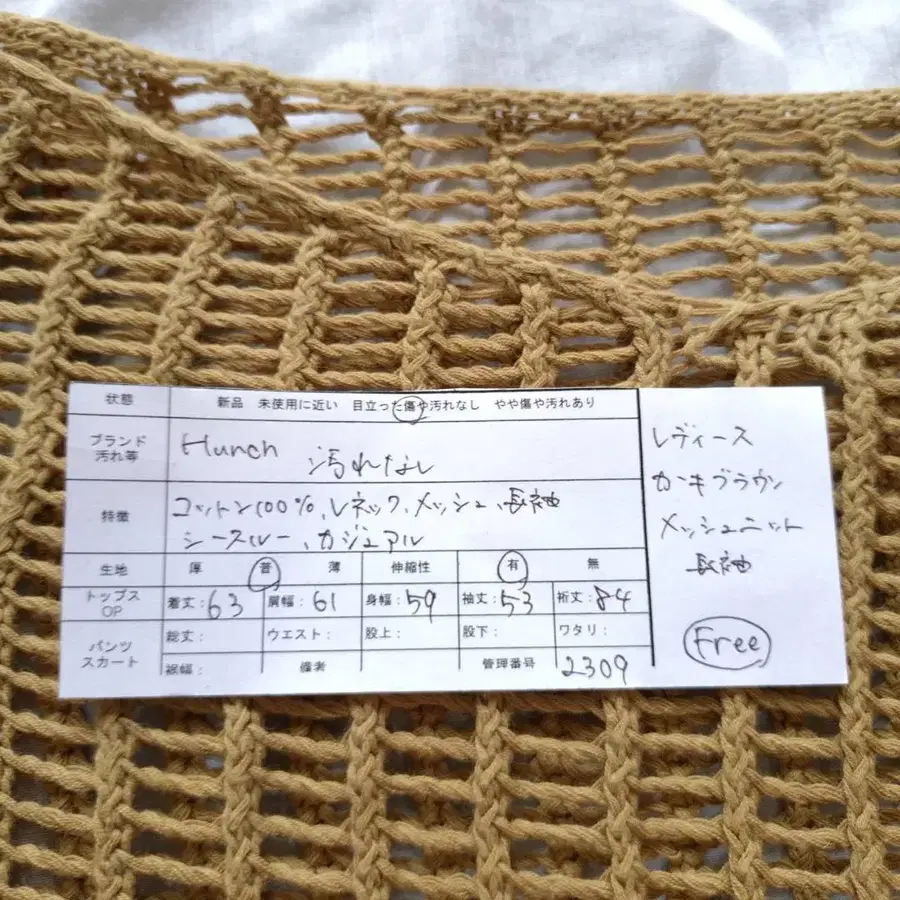 状態 新品 未使用に近い 目立った傷や汚れなし やや傷や汚れあり
ブランド 汚れ等 Hunch 汚れなし
特徴 コットン100%、Vネック、メッシュ、長袖
シースルー、カジュアル
生地 厚 普 薄 伸縮性 有 無
トップス OP 着丈:63 肩幅:61 身幅:59 袖丈:53 裄丈:84
パンツ スカート 総丈: ウエスト: 股上: 股下: ワタリ:
裾幅: 備考 管理番号 2309
レディース
カーキブラウン
メッシュニット
長袖
Free